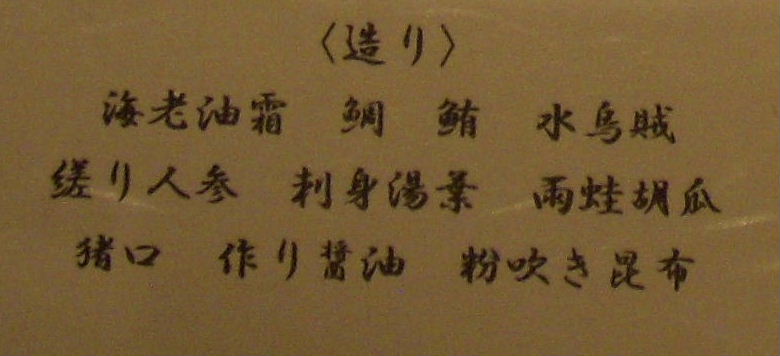 〈造り〉
海老油霜　鯛　鮪　水烏賊
縒り人参　刺身湯葉　雨蛙胡瓜
猪口　作り醤油　粉吹き昆布